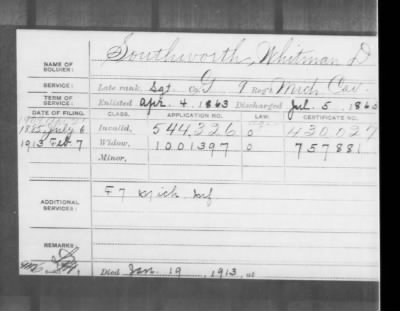 NAME OF SOLDIER: Southworth, Whitman D
SERVICE: Late rank, Sgt Co. G 9 Reg't Mich Cav.
TERM OF SERVICE: Enlisted Apr. 4, 1863 Discharged Jul. 5, 1865
DATE OF FILING. CLASS. APPLICATION NO. LAW. CERTIFICATE NO.
1885 July 6 Invalid, 544,326 430,027
1913 Feb 7 Widow, 1001397 757881
Minor,
ADDITIONAL SERVICES: F 7 Mich Inf
REMARKS:
Died Jan. 19, 1913, at